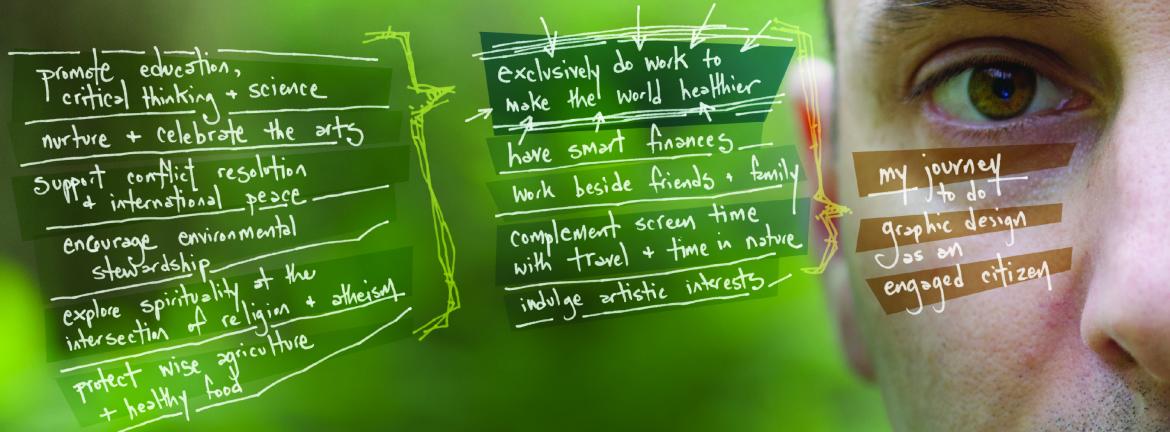 promote education,
critical thinking + science
nurture + celebrate the arts
support conflict resolution
+ international peace
encourage environmental
stewardship
explore spirituality at the
intersection of religion + atheism
protect wise agriculture
+ healthy food
exclusively do work to
make the world healthier
have smart finances
work beside friends + family
complement screen time
with travel + time in nature
indulge artistic interests
my journey
to do
graphic design
as an
engaged citizen